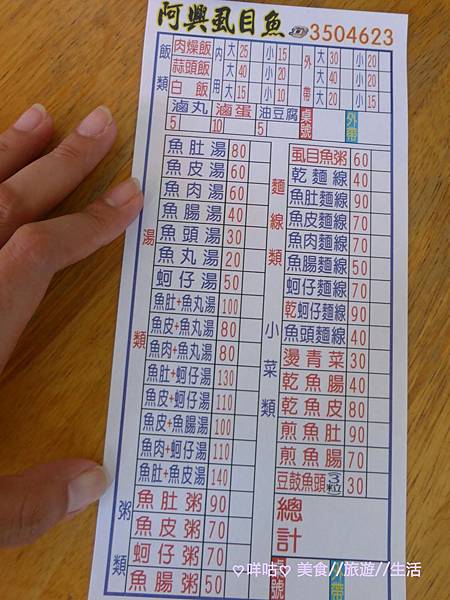 阿興虱目魚 ☎3504623
飯類 肉燥飯 內用 大25 小15 外帶 大30 小20
蒜頭飯 大40 小20 大40 小20
白飯 大15 小10 大20 小15
滷丸5 滷蛋10 油豆腐5 桌號 外帶
湯類
魚肚湯 80
魚皮湯 60
魚肉湯 60
魚腸湯 40
魚頭湯 30
魚丸湯 20
蚵仔湯 50
魚肚+魚丸湯 100
魚皮+魚丸湯 80
魚肉+魚丸湯 80
魚肚+蚵仔湯 130
魚皮+蚵仔湯 110
魚皮+魚腸湯 100
魚肉+蚵仔湯 110
魚肚+魚皮湯 140
粥類
魚肚粥 90
魚皮粥 70
蚵仔粥 70
魚腸粥 50
虱目魚粥 60
麵線類
乾麵線 40
魚肚麵線 90
魚皮麵線 70
魚肉麵線 70
魚腸麵線 50
蚵仔麵線 70
乾蚵仔麵線 90
魚頭麵線 40
小菜類
燙青菜 30
乾魚腸 40
乾魚皮 80
煎魚肚 90
煎魚腸 70
豆鼓魚頭3粒 30
總計
桌號 外帶
♡咩咕♡ 美食//旅遊//生活